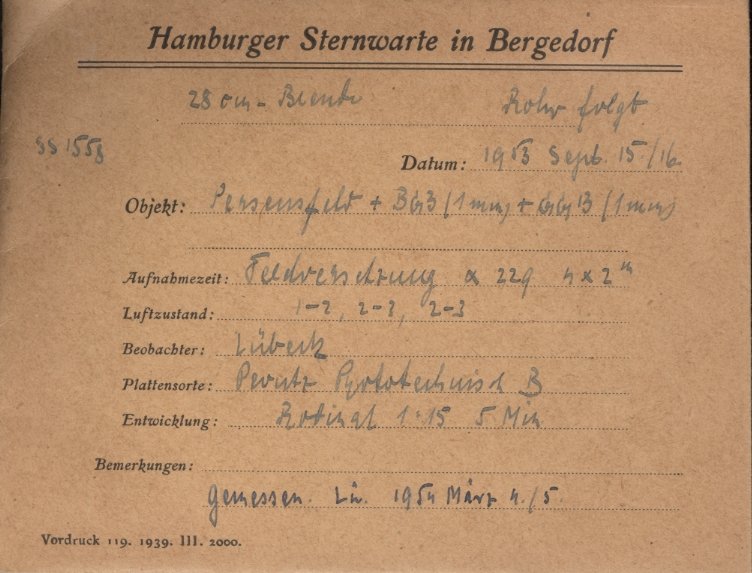 Hamburger Sternwarte in Bergedorf
28 cm - Blende Rohr folgt
SS 1558
Datum: 1953 Sept. 15./16.
Objekt: Perseusfeld + BG3 (1 mm) + GG13 (1 mm)
Aufnahmezeit: Feldversetzung α 229 4 x 2 m
Luftzustand: 1-2, 2-3, 2-3
Beobachter: Lübeck
Plattensorte: Perutz Phototechnisch B
Entwicklung: Rodinal 1:15 5 Min
Bemerkungen:
Gemessen. Lü. 1954 März 4./5.
Vordruck 119. 1939. III. 2000.